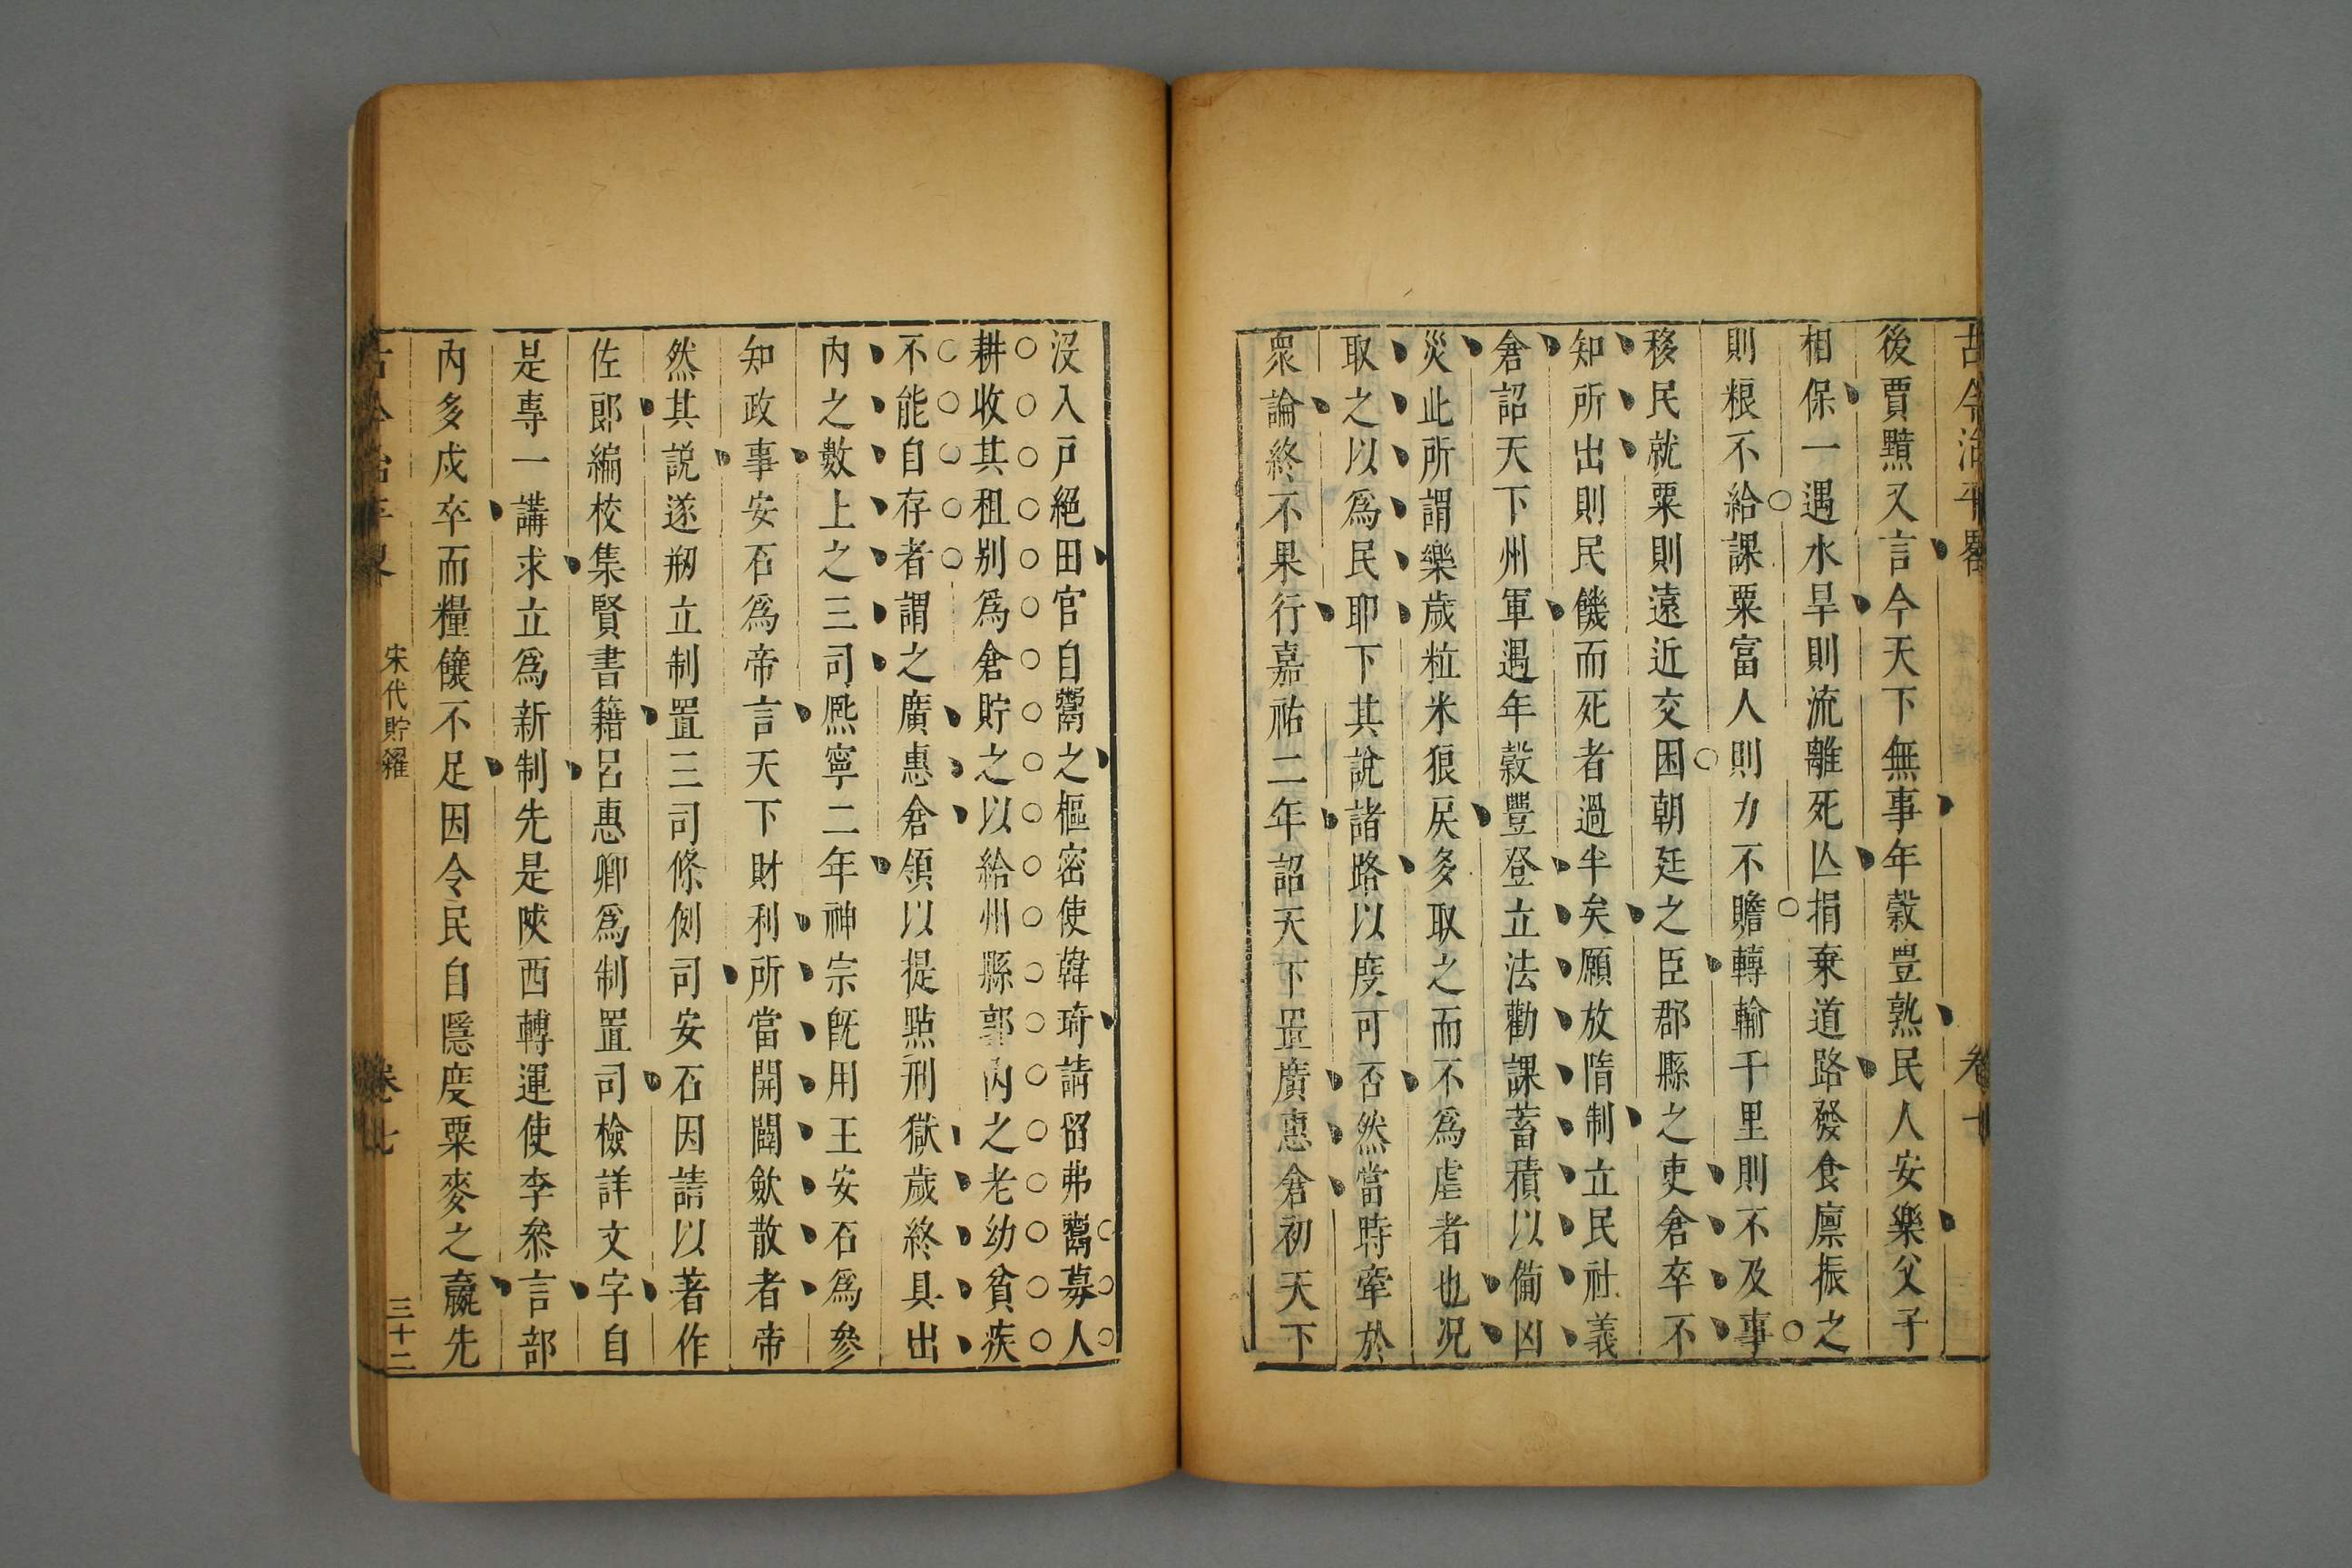 古今治平畧 卷七
後賈黯又言今天下無事年穀豊熟民人安樂父子
相保一遇水旱則流離死亾捐棄道路發食廩振之
則粮不給課粟富人則力不贍轉輸千里則不及事
移民就粟則遠近交困朝廷之臣郡縣之吏倉卒不
知所出則民饑而死者過半矣願放隋制立民社義
倉詔天下州軍遇年穀豐登立法勸課蓄積以備凶
災此所謂樂歲粒米狼戾多取之而不為虐者也况
取之以爲民耶下其說諸路以度可否然當時牽於
眾論終不果行嘉祐二年詔天下置廣惠倉初天下
沒入戸絕田官自鬻之樞密使韓琦請留弗鬻募人
耕收其租别爲倉貯之以給州縣郭內之老幼貧疾
不能自存者謂之廣惠倉領以提㸃刑獄歲終具出
内之數上之三司熈寧二年神宗旣用王安石爲參
知政事安石爲帝言天下財利所當開闔歛散者帝
然其説遂剏立制置三司條例司安石因請以著作
佐郎編校集賢書籍呂惠卿爲制置司檢詳文字自
是專一講求立爲新制先是陝西轉運使李叅言部
内多戍卒而糧饟不足因令民自隱度粟麥之贏先
古今治平畧 宋代貯糴 卷七 三十二